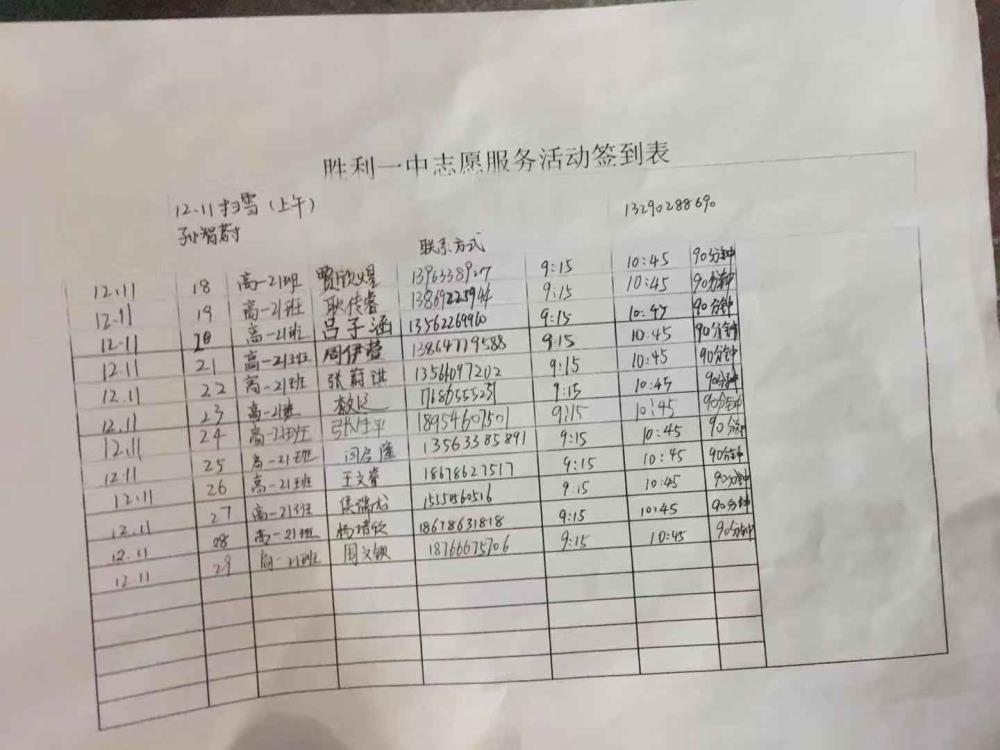 胜利一中志愿服务活动签到表
12.11扫雪(上午) 13290288690
孙智蔚
联系方式
12.11 18 高一21班 贾欣煜 9:15 10:45 90分钟
12.11 19 高一21班 耿传睿 13869225944 9:15 10:45 90分钟
12.11 20 高一21班 吕子涵 13562269960 9:15 10:45 90分钟
12.11 21 高一21班 周伊萱 13864779588 9:15 10:45 90分钟
12.11 22 高一21班 张蔚琪 13561097202 9:15 10:45 90分钟
12.11 23 高一21班 9:15 10:45 90分钟
12.11 24 高一21班 18954607501 9:15 10:45 90分钟
12.11 25 高一21班 13563385891 9:15 10:45 90分钟
12.11 26 高一21班 王文睿 18678627517 9:15 10:45 90分钟
12.11 27 高一21班 侯瑞龙 15550560516 9:15 10:45 90分钟
12.11 28 高一21班 18678631818 9:15 10:45 90分钟
12.11 29 高一21班 周文敏 18766675706 9:15 10:45 90分钟